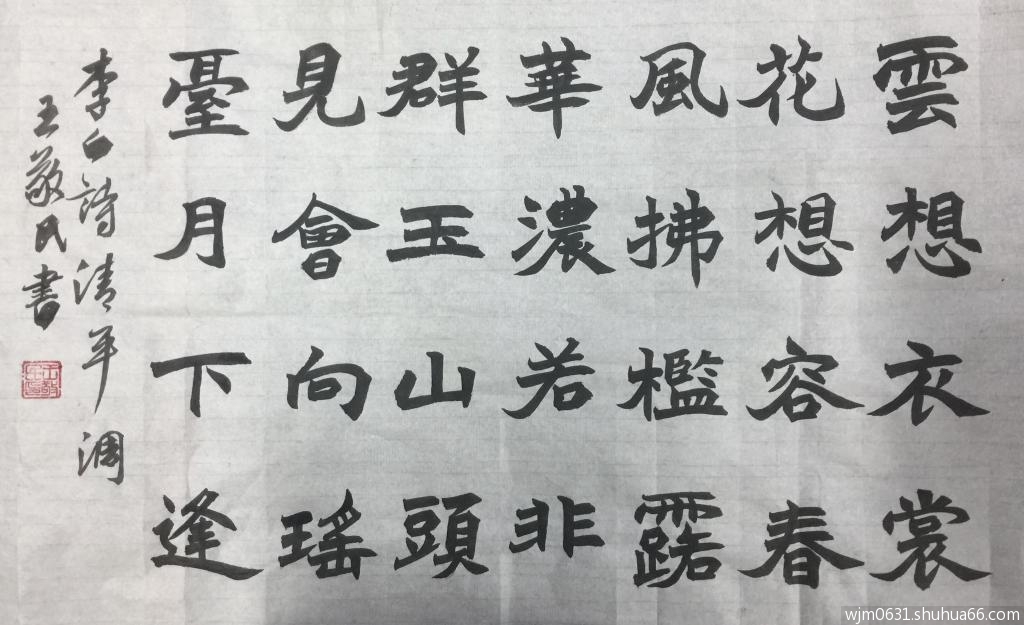 雲想衣裳
花想容春
風拂檻露
華濃若非
群玉山頭
見會向瑤
臺月下逢
李白詩清平淍
王敬民書
wjm0631.shuhua66.com